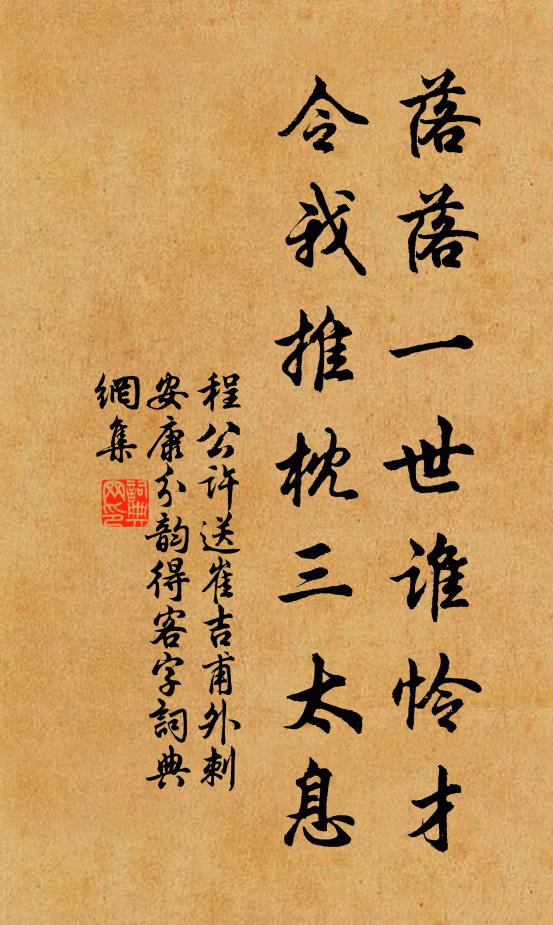 落落一世谁怜才
令我推枕三太息
程公许送崔吉甫外刺
安康分韵得客字詞典
網集
詞典網印